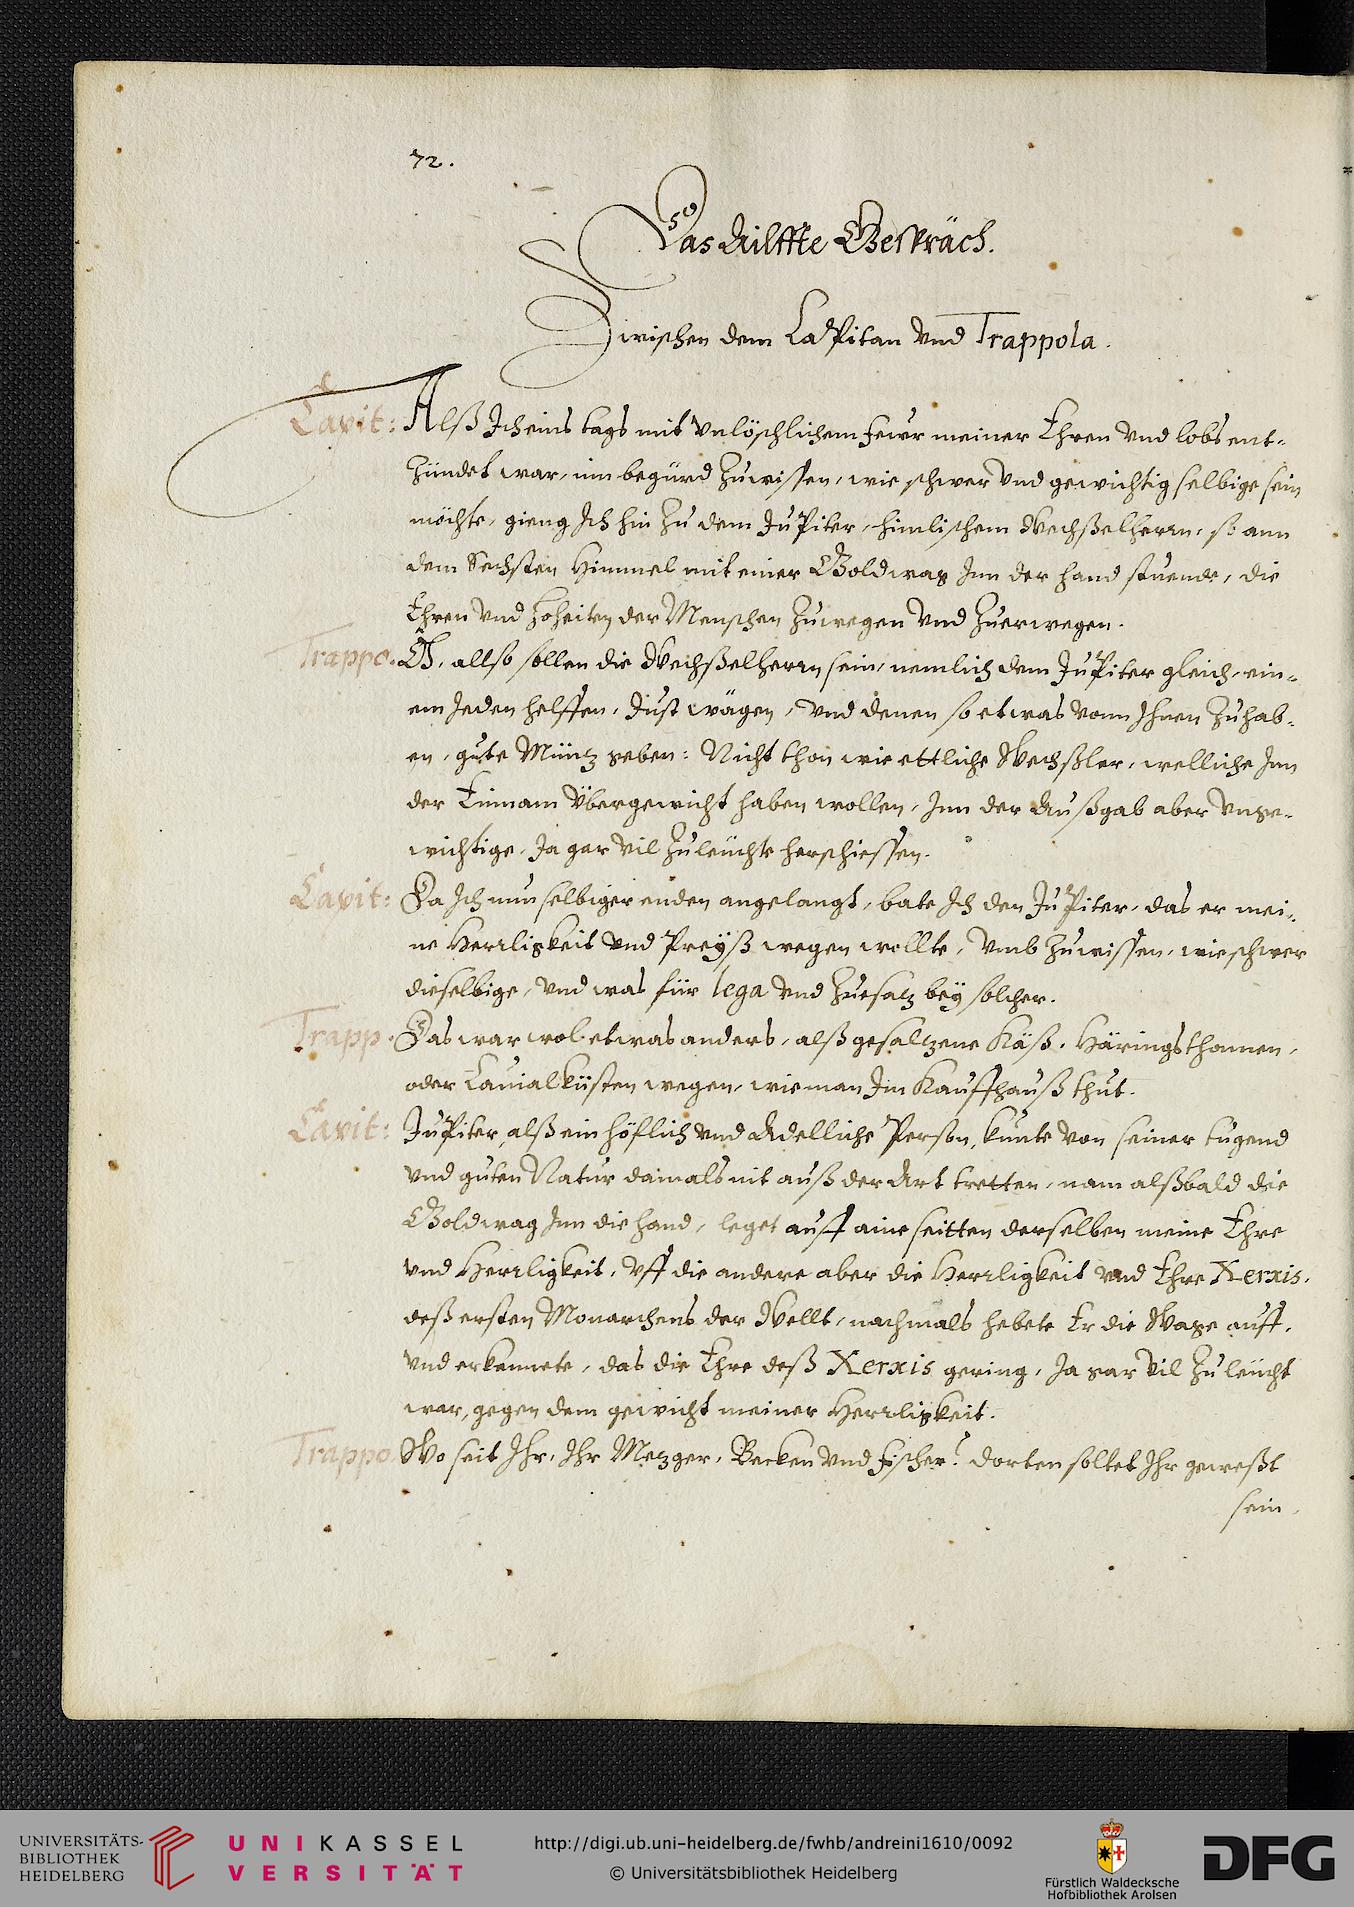 72.
Das Ailffte Gespräch.
Zwischen dem Capitan vnd Trappola.
Capit: Alß Ich eins tags mit vnlöschlichem fewr meiner Ehren vnd lobs ent-
zündet war, inn begürd zuwissen, wie schwer vnd gewichtig selbige sein
möchte, gieng Ich hin zu dem Jupiter, himlischem Wechßelherrn, so ann
dem Sechsten Himmel mit einer Goldwag Inn der hand stuende, die
Ehren vnd hoheiten der Menschen zuwegen vnd zuerwegen.
Trappo. O, allso sollen die Wechßelherrn sein, nemlich dem Jupiter gleich, ein-
em Jeden helffen, Just wägen, vnd denen so etwas vonn Ihnen zuhab-
en, gute Müntz geben: Nicht thon wie ettliche Wechßler, welliche Inn
der Einnam Übergewicht haben wollen, Inn der Außgab aber vnge-
wichtige, Ja gar vil zuleüchte herschiessen.
Capit: Da Ich nun selbiger enden angelangt, bate Ich den Jupiter, das er mei-
ne Herrligkeit vnd Preyß wegen wollte, vmb zuwissen, wie schwer
dieselbige, vnd was für lega vnd zuesatz bey solcher.
Trapp. Das war wol etwas anders, alß gesaltzene Käß, Häringsthonnen,
oder Cauialküsten wegen, wie man Im Kauffhauß thut.
Capit: Jupiter, alß ein höflich vnd Adelliche Person, kunte von seiner tugend
vnd guten Natur damals nit auß der Art tretten, nam alßbald die
Goldwag Inn die hand, leget auff aine seitten derselben meine Ehre
vnd Herrligkeit, vff die andere aber die Herrligkeit vnd Ehre Xerxis,
deß ersten Monarchens der Wellt, nachmals hebete Er die Wage auff,
vnd erkennete, das die Ehre deß Xerxis gering, Ja gar vil zuleücht
war, gegen dem gewicht meiner Herrligkeit.
Trappo. Wo seit Ihr, Ihr Metzger, Becken vnd fischer? dorten soltet Ihr geweßt
sein,
UNIVERSITÄTS-
BIBLIOTHEK
HEIDELBERG
UNIKASSEL
VERSITÄT
http://digi.ub.uni-heidelberg.de/fwhb/andreini1610/0092
© Universitätsbibliothek Heidelberg
Fürstlich Waldecksche
Hofbibliothek Arolsen
DFG